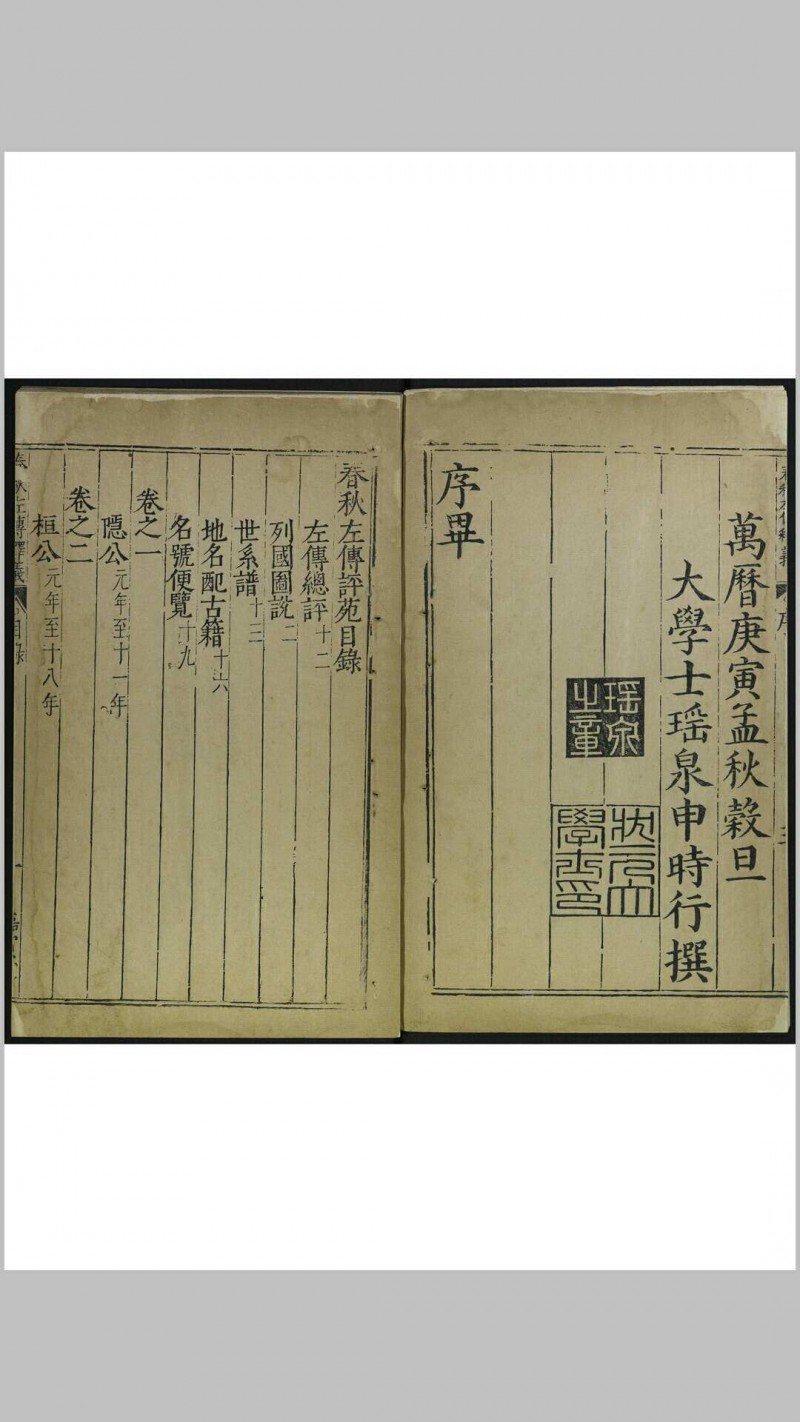 萬曆庚寅孟秋穀旦
大學士瑶泉申時行撰
瑶泉之章
狀元大學士印
序畢
春秋左傳評苑目錄
左傳總評十二
列國圖說二
世系譜十三
地名配古籍十六
名號便覽十九
卷之一
隱公元年至十一年
卷之二
桓公元年至十八年
目錄